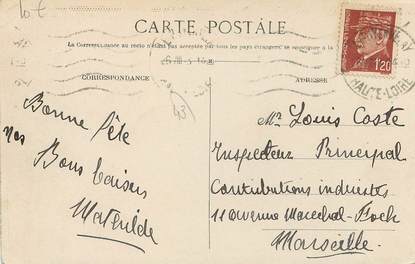 10 €
CARTE POSTALE
La Correspondance au recto n'étant pas acceptée par tous les pays étrangers, se renseigner à la
CORRESPONDANCE
ADRESSE
1F20
HAUTE-LOIRE
Bonne fête
Nos
Bons baisers
Mathilde
Mr Louis Coste
Inspecteur Principal
Contributions indirectes
11 avenue Marechal-Foch
Marseille.